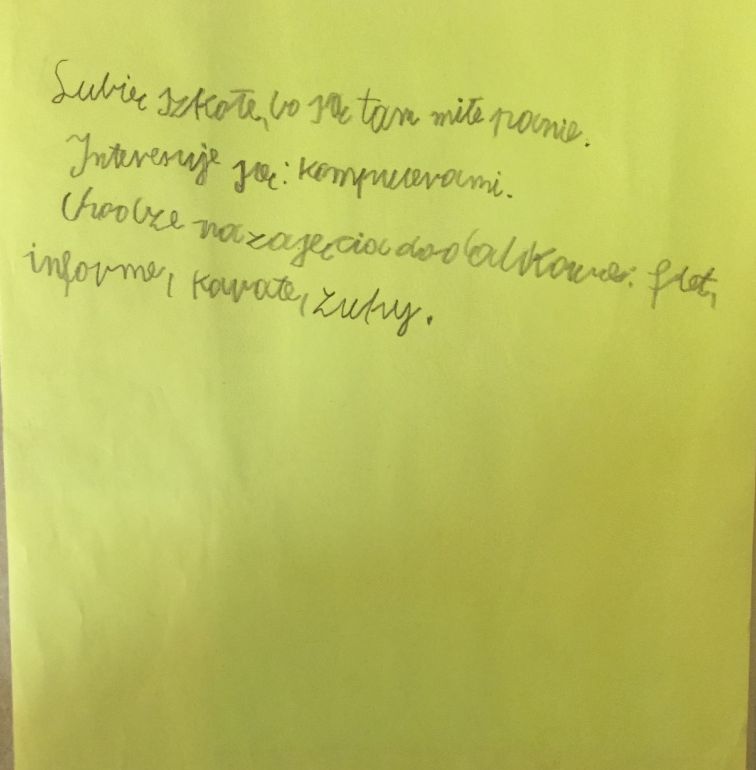 Lubię szkołę, bo są tam miłe panie.
Interesuje się: kompuerami.
Chodze na zajęcia dodalkowe: flet,
informe, karate, zuhy.